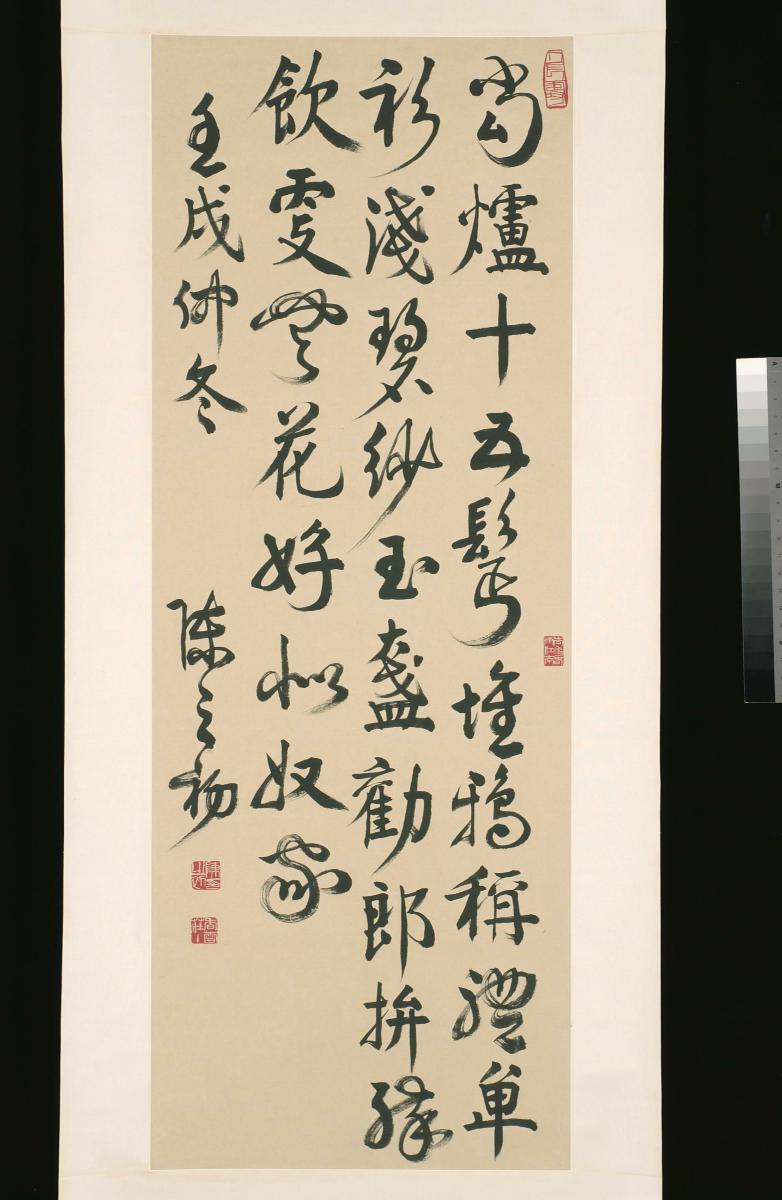 當爐十五鬢堆鴉稱體單
衫淺碧紗玉盞勸郎拚醉
飲更無花好似奴家
壬戌仲冬 陳之初